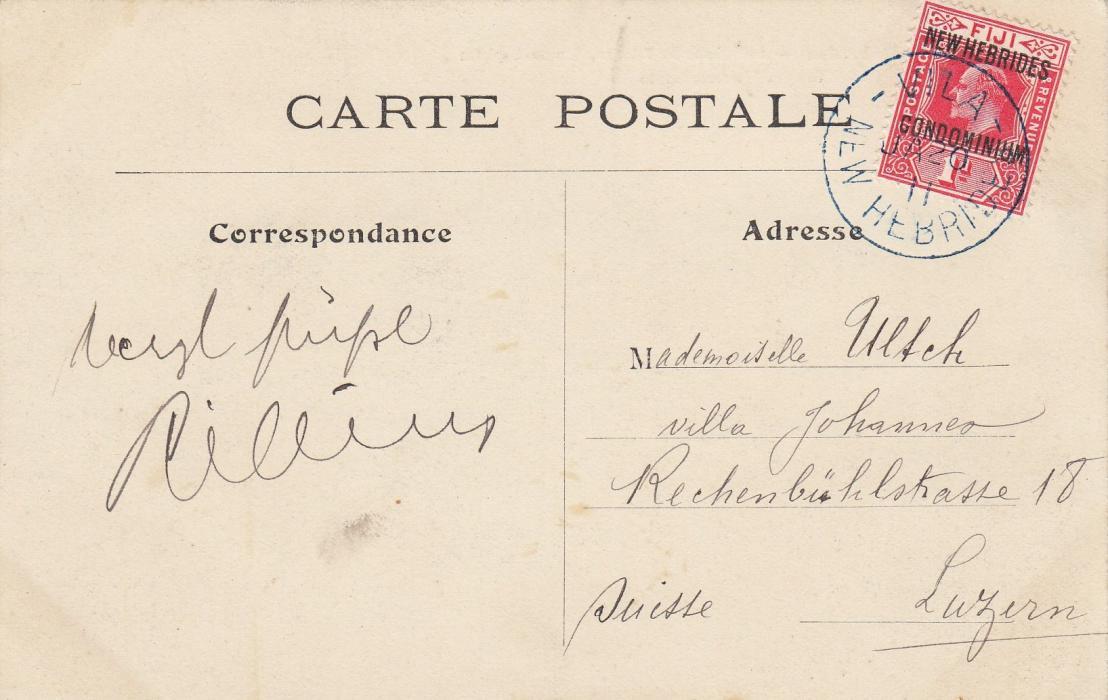 CARTE POSTALE
FIJI
NEW HEBRIDES
CONDOMINIUM
POSTAGE
REVENUE
1d
VILA
JA 20
11
NEW HEBRIDES
Correspondance
Adresse
Mademoiselle Ultsch
villa Johannes
Rechenbühlstrasse 18
Suisse
Luzern